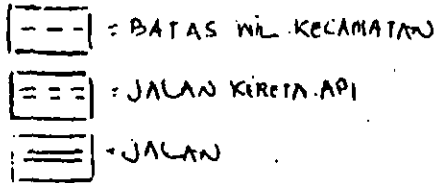 = BATAS WIL. KECAMATAN
= JALAN KERETA.API
= JALAN